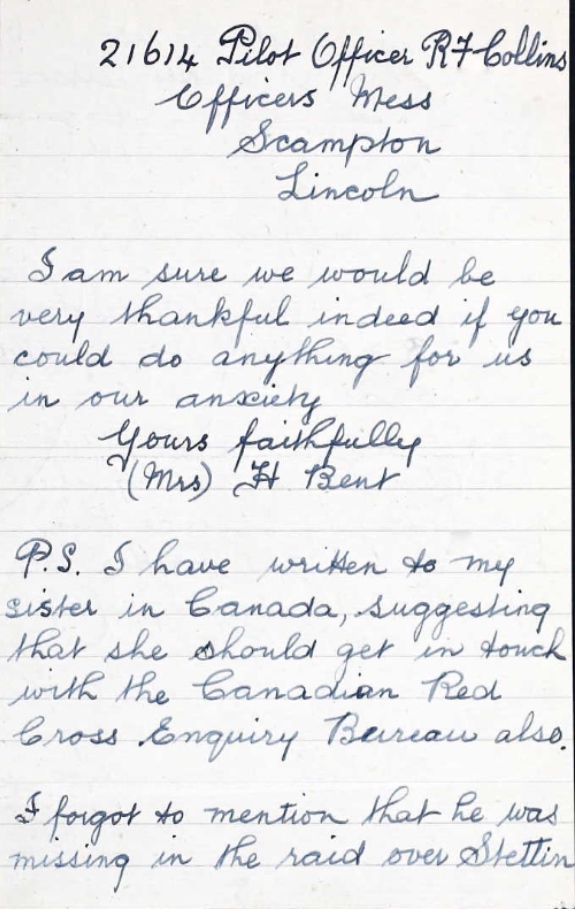 21614 Pilot Officer R F Collins
Officers Mess
Scampton
Lincoln
I am sure we would be
very thankful indeed if you
could do anything for us
in our anxiety
Yours faithfully
(Mrs) H Bent
P.S. I have written to my
sister in Canada, suggesting
that she should get in touch
with the Canadian Red
Cross Enquiry Bureau also.
I forgot to mention that he was
missing in the raid over Stettin